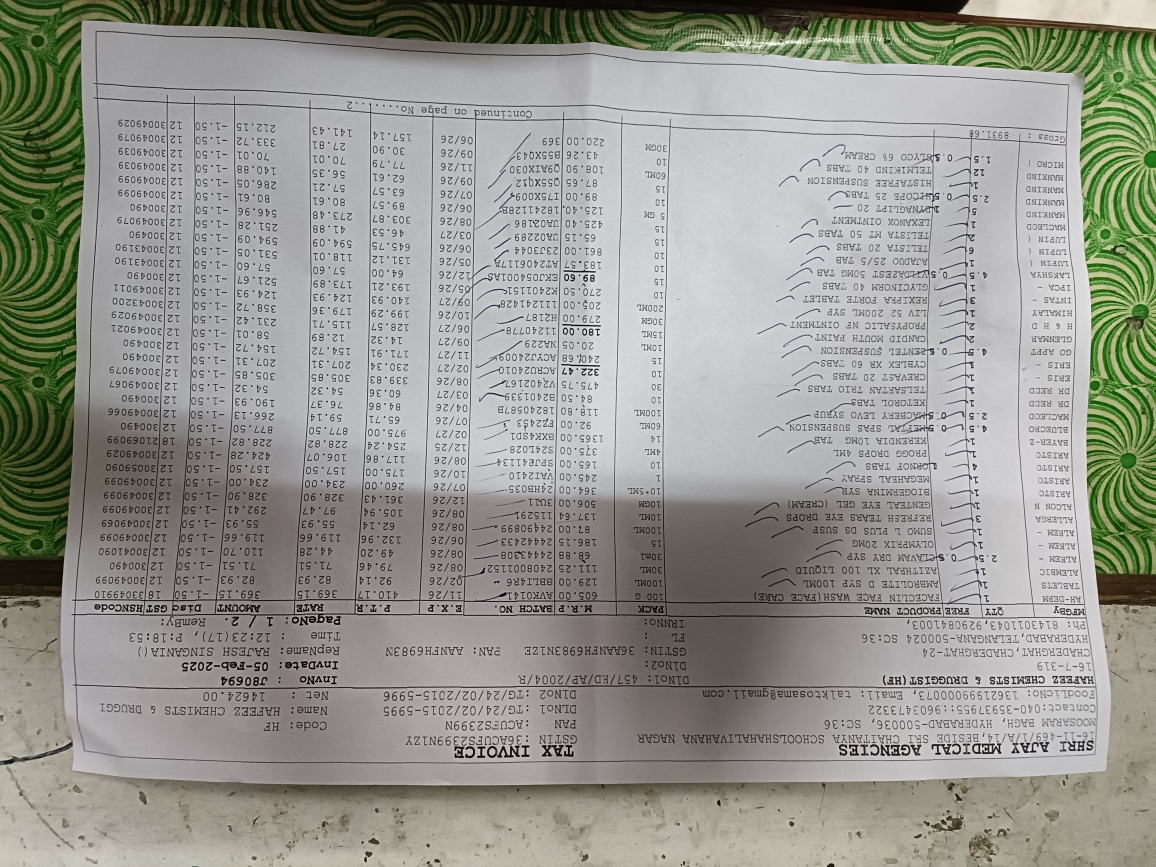 SHRI AJAY MEDICAL AGENCIES TAX INVOICE
16-11-469/1/A/14, BESIDE SRI CHAITANYA SCHOOLSHAHALIVAHANA NAGAR GSTIN : 36ACUFS2399N1ZY
MOOSARAM BAGH, HYDERABAD-500036, SC:36 PAN : ACUFS2399N Code: HF
Contact:040-35937955::9603473322 DLNO1 :TG/24/02/2015-5995 Name: HAFEEZ CHEMISTS & DRUGGI
FoodLicNo:13621999000073, Email: talktosama@gmail.com DLNO2 :TG/24/02/2015-5996 Net : 14624.00
HAFEEZ CHEMISTS & DRUGGIST(HF) DLNO1: 457/ED/AP/2004/R InvNo : J80694
16-7-319 DLNO2: InvDate: 05-Feb-2025
CHADERGHAT,CHADERGHAT-24 GSTIN: 36AANFH6983N1ZE PAN: AANFH6983N RepName: RAJESH SINGANIA()
HYDERABAD, TELANGANA-500024 SC:36 FL : Time : 12:23(17), P:18:53
Ph: 8143011043,9290841003, IRNNO: PageNo: 1 / 2. RemBy:
MFGBy QTY FREE PRODUCT NAME PACK M.R.P BATCH NO. E.X.P P.T.R RATE AMOUNT Disc GST HSNCode
AH-DERM 1 FACECLIN FACE WASH(FACE CARE) 100 G 605.00 AVK0141 11/26 410.17 369.15 369.15 -1.50 18 30049910
TABLETS 1 AMBROLITE D SYP 100ML 100ML 129.00 BBLI4R6 02/26 92.14 82.93 82.93 -1.50 12 30049099
ALEMBIC 1 AZITHRAL XL 100 LIQUID 30ML 111.25 2408001152 08/26 79.46 71.51 71.51 -1.50 12 300490
ALKEM - 2.5 0.5 CLAVAM DRY SYP 30ml 68.88 24443308 08/26 49.20 44.28 110.70 -1.50 12 30041090
ALKEM - 1 OLYMPRIX 20MG 15 186.15 24442433 06/26 132.96 119.66 119.66 -1.50 12 30049099
ALKEM - 1 SUMO L PLUS DS SUSP 10ML 87.00 24440899 08/26 62.14 55.93 55.93 -1.50 12 30049069
ALLERGA 3 REFRESH TEARS EYE DROPS 10ML 137.64 115291 08/26 105.94 97.47 292.41 -1.50 12 30049099
ALCON N 1 GENTEAL EYE GEL (CREAM) 10GM 506.00 12/26 361.43 328.90 328.90 -1.50 12 30049099
ARISTC 1 BIOGERMINA SYP 10*5ML 364.00 24HB035 07/26 260.00 234.00 234.00 -1.50 12 300490
ARISTC 1 MEGAHEAL SPRAY 1 245.00 VAI2410 10/26 175.00 157.50 157.50 -1.50 12 30059090
ARISTC 4 ORNOF TABS 10 165.00 SPJF241134 08/26 117.86 106.07 424.28 -1.50 12 30049029
ARISTC 1 PROGG DROPS 4ML 4ML 375.00 SZ41028 12/25 254.24 228.82 228.82 -1.50 18 21069099
BAYER-Z 1 KERENDIA 10MG TAB 14 1365.00 BXK4SD1 02/27 975.00 877.50 877.50 -1.50 12 300490
BLUECRO 4.5 0.5 MEFTAL SPAS SUSPENSION 60ML 92.00 PF2453 07/26 65.71 59.14 266.13 -1.50 12 30049066
MACLEOD 2.5 0.5 MACBERY LEVO SYRUP 100ML 118.80 18240587B 04/26 84.86 76.37 190.93 -1.50 12 300490
DR REDD 1 KETOROL TABS 10 84.50 B2401339 03/27 60.36 54.32 54.32 -1.50 12 30049067
DR REDD 1 TELSARTAN TRIO TABS 30 475.75 V2402167 08/26 339.83 305.85 305.85 -1.50 12 30049079
ERIS - 1 CREVAST 20 TABS 10 322.47 ACRU24010 02/27 230.34 207.31 207.31 -1.50 12 300490
ERIS - 1 CYBLEX XR 60 TABS 15 240.68 ACY24009 11/27 171.91 154.72 154.72 -1.50 12 300490
GO APPT 4.5 0.5 BENTEL SUSPENSION 10ML 20.05 NA229 09/27 14.32 12.89 58.01 -1.50 12 30049021
GLENMAR 2 CANDID MOUTH PAINT 15ML 180.00 11240778 06/27 128.57 115.71 231.42 -1.50 12 30049029
H & H D 2 PROPYSALIC NF OINTMENT 30GM 279.00 H2187 10/26 199.29 179.36 358.72 -1.50 12 30043200
HIMALAY 1 LIV 52 200ML SYP 200ML 205.00 112421428 09/27 140.93 124.93 124.93 -1.50 12 30049011
INTAS - 3 REXIPRA FORTE TABLET 10 270.50 K2401151 05/26 193.21 173.89 521.67 -1.50 12 300490
IPCA - 1 GLYCINORM 40 TABS 10 89.60 EKJ054001AS 12/26 64.00 57.60 57.60 -1.50 12 30043190
LAKSHYA 4.5 0.5 VILDAZEST 50MG TAB 10 183.57 AT240617A 05/26 131.12 118.01 531.05 -1.50 12 30043190
LUPIN ( 1 AJADUO 25/5 TAB 10 861.00 23J3044 06/26 645.75 594.09 594.09 -1.50 12 300490
LUPIN ( 6 TELISTA 20 TABS 15 65.15 UA02289 03/27 46.53 41.88 251.28 -1.50 12 30049079
LUPIN ( 2 TELISTA MT 50 TABS 15 425.40 UA02186 08/26 303.87 273.48 546.96 -1.50 12 300490
MACLEOD 1 LEXANOX OINTMENT 5 GM 125.40 18241128B 06/26 89.57 80.61 80.61 -1.50 12 30049099
MANKIND 5 DYNAGLIPT 20 15 89.00 I7SX009 07/26 63.57 57.21 286.05 -1.50 12 30049099
MANKIND 2.5 0.5 25 TABS 15 87.65 Q5SX012 09/26 62.61 56.35 140.88 -1.50 12 30049099
MANKIND 1 HISTAFREE SUSPENSION 60ML 108.90 Q9AIX030 11/26 77.79 70.01 70.01 -1.50 12 30049039
MANKIND 12 TELMIKIND 40 TABS 10 43.26 B5SX5043 09/26 30.90 27.81 333.72 -1.50 12 30049079
MICRO ( 1.5 0.5 GLYCO 6% CREAM 30GM 220.00 369 06/26 157.14 141.43 212.15 -1.50 12 30049029
Gross : 8931.68
Continued on page No......2